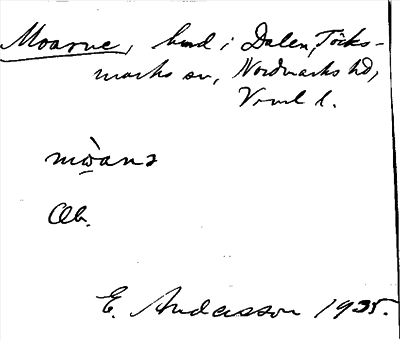 Moarne, hmd i Dalen, Töcks-
marks sn, Nordmarks hd,
Vrml l.
mẁ̱anə
Ob.
E. Andersson 1935.